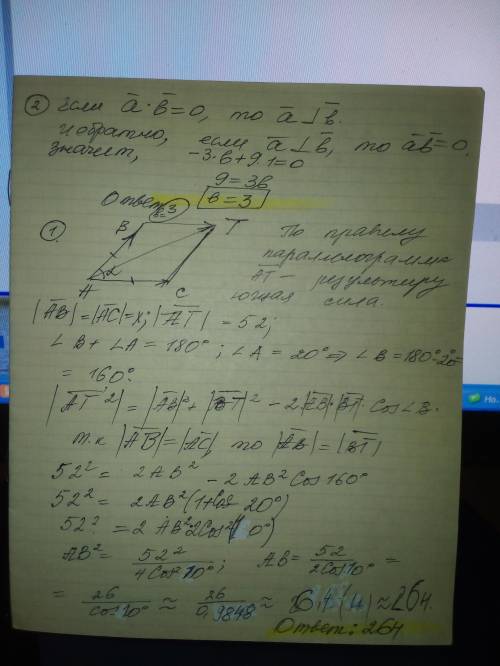 ② Если a̅·b̅=0, то a̅⊥b̅.
и обратно, если a̅⊥b̅, то a̅b̅=0.
значит, -3·в+9·1=0
9=3в
Ответ: в=3 в=3
① B T
По правилу
параллелограмма
A α C
AT – результиру
ющая сила.
|AB|=|AC|=x; |AT|=52;
∠B+∠A=180°; ∠A=20°⇒∠B=180°-20°=
=160°.
|AT²|=|AB|²+|BT|²-2|AB|·|BT|·Cos∠B.
т.к |AB|=|AC|, то |AB|=|BT|
52²=2AB²-2AB²Cos160°
52²=2AB²(1+Cos20°)
52²=2AB²2Cos²(10°)
AB²=52²/4Cos²10°; AB=52/2Cos10°=
=26/cos10°≈26/0,9848≈26,4(Н)≈26Н.
Ответ: 26Н